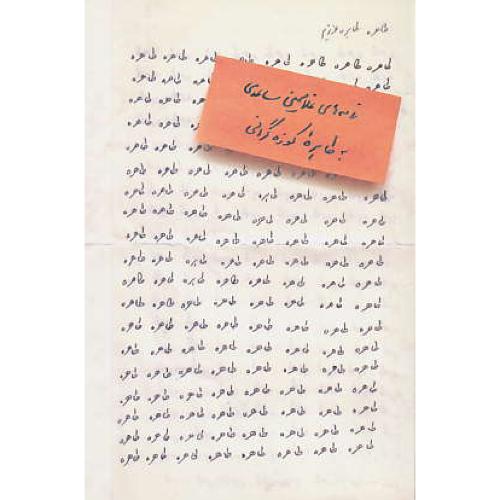 طاهره، طاهره عزیزم
طاهره طاهره طاهره طاهره طاهره طاهره طاهره طاهره
طاهره طاهره طاهره طاهره
نامه‌های غلامحسین ساعدی
به طاهرهٔ کوزه‌گرانی
طاهره طاهره
طاهره طاهره
طاهره طاهره
طاهره طاهره طاهره طاهره طاهره طاهره طاهره طاهره
طاهره طاهره طاهره طاهره طاهره طاهره طاهره طاهره
طاهره طاهره طاهره طاهره طاهره طاهره طاهره طاهره
طاهره طاهره طاهره طاهره طاهره طاهره طاهره طاهره
طاهره طاهره طاهره طاهره طاهره طاهره طاهره طاهره
طاهره طاهره طاهره طاهره طاهره طاهره طاهره طاهره
طاهره طاهره طاهره طاهره طاهره طاهره طاهره طاهره
طاهره طاهره طاهره طاهره طاهره طاهره طاهره طاهره
طاهره طاهره طاهره طاهره طاهره طاهره طاهره طاهره
طاهره طاهره طاهره طاهره طاهره طاهره طاهره طاهره
طاهره طاهره طاهره طاهره طاهره طاهره طاهره طاهره
طاهره طاهره طاهره طاهره طاهره طاهره طاهره طاهره
طاهره طاهره طاهره طاهره طاهره طاهره طاهره طاهره
طاهره طاهره طاهره طاهره طاهره طاهره طاهره طاهره